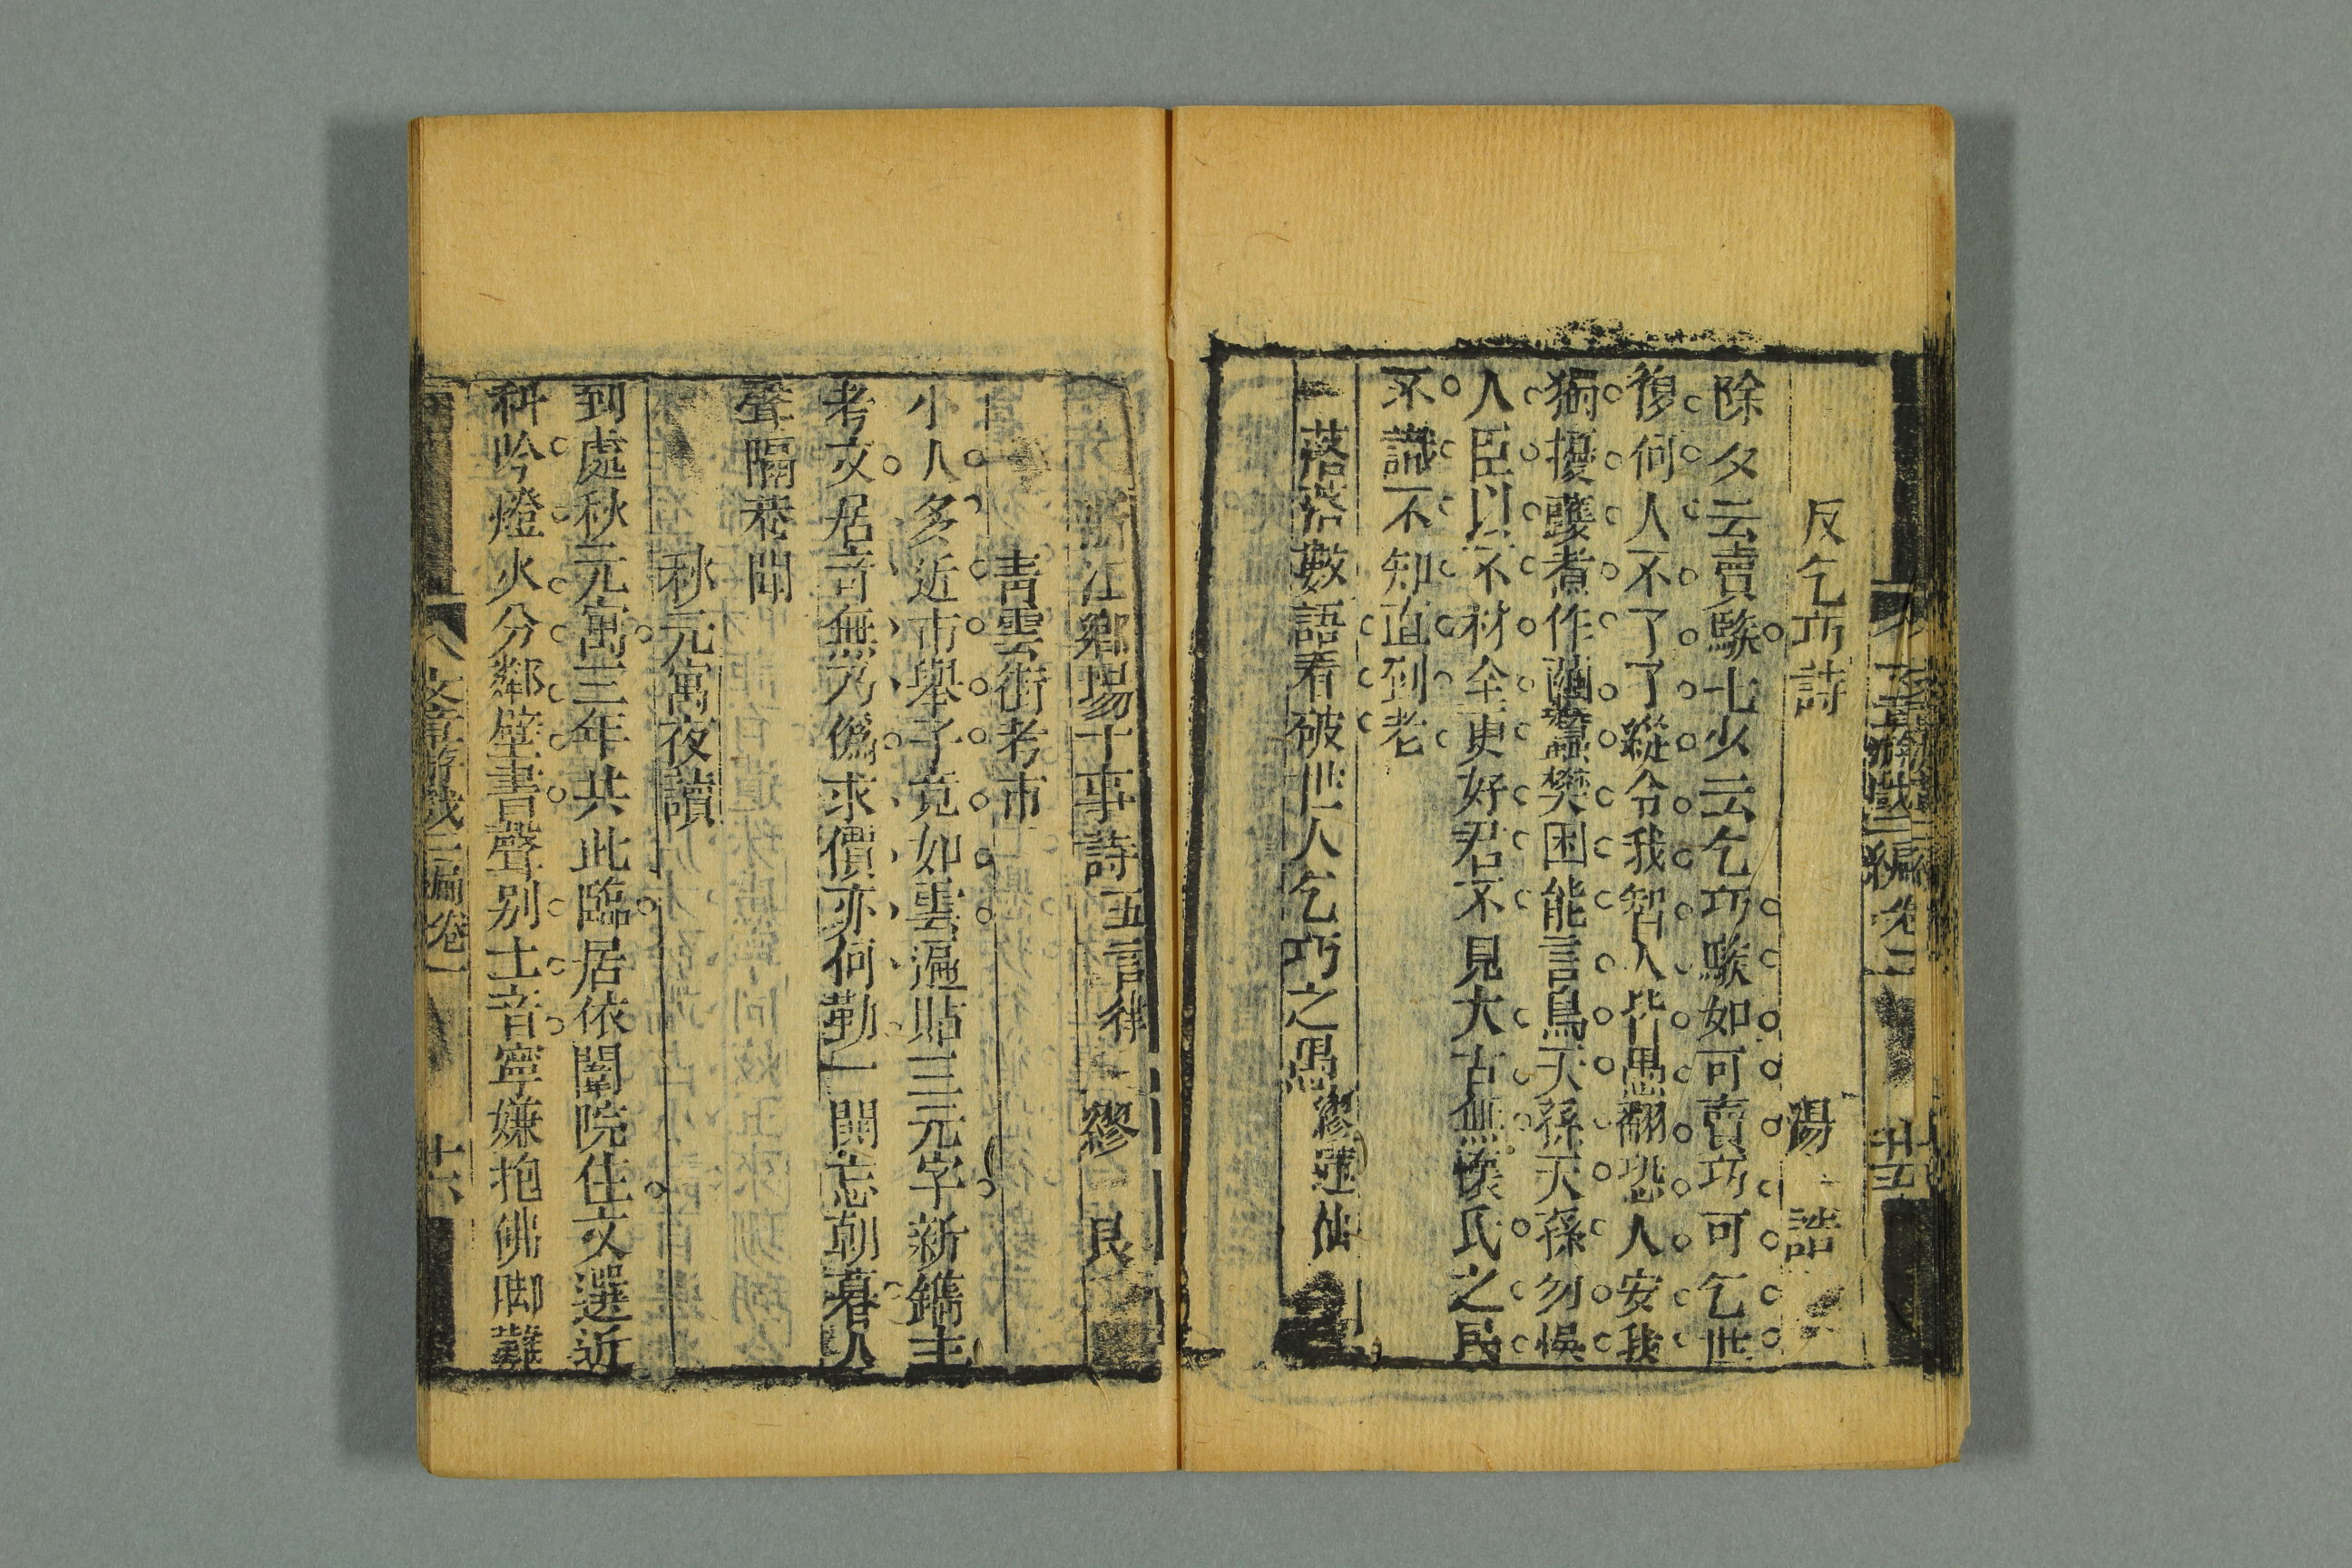 反乞巧詩　湯　誥
除夕云賣騃七夕云乞巧騃如可賣巧可乞世
復何人不了了縱令我智人皆愚翻恐人安我
獨擾蠶煮作繭蠶樊困能言鳥天孫天孫勿悞
人臣以不材全更好君不見大古無懷氏之民
不識不知直到老
落落數語看破世人乞巧之愚繆蓮仙
浙江鄉場十事詩五言律　繆　艮
青雲街考市
小人多近市舉子竟如雲遍貼三元字新鐫主
考文居奇無乃僞求價亦何勤一閧忘朝暮人
聲隔巷聞
秋元寓夜讀
到處秋元寓三年共此臨居依闈院住文選近
科吟燈火分鄰壁書聲別土音寧嫌抱佛脚難
文章游戲二編卷一